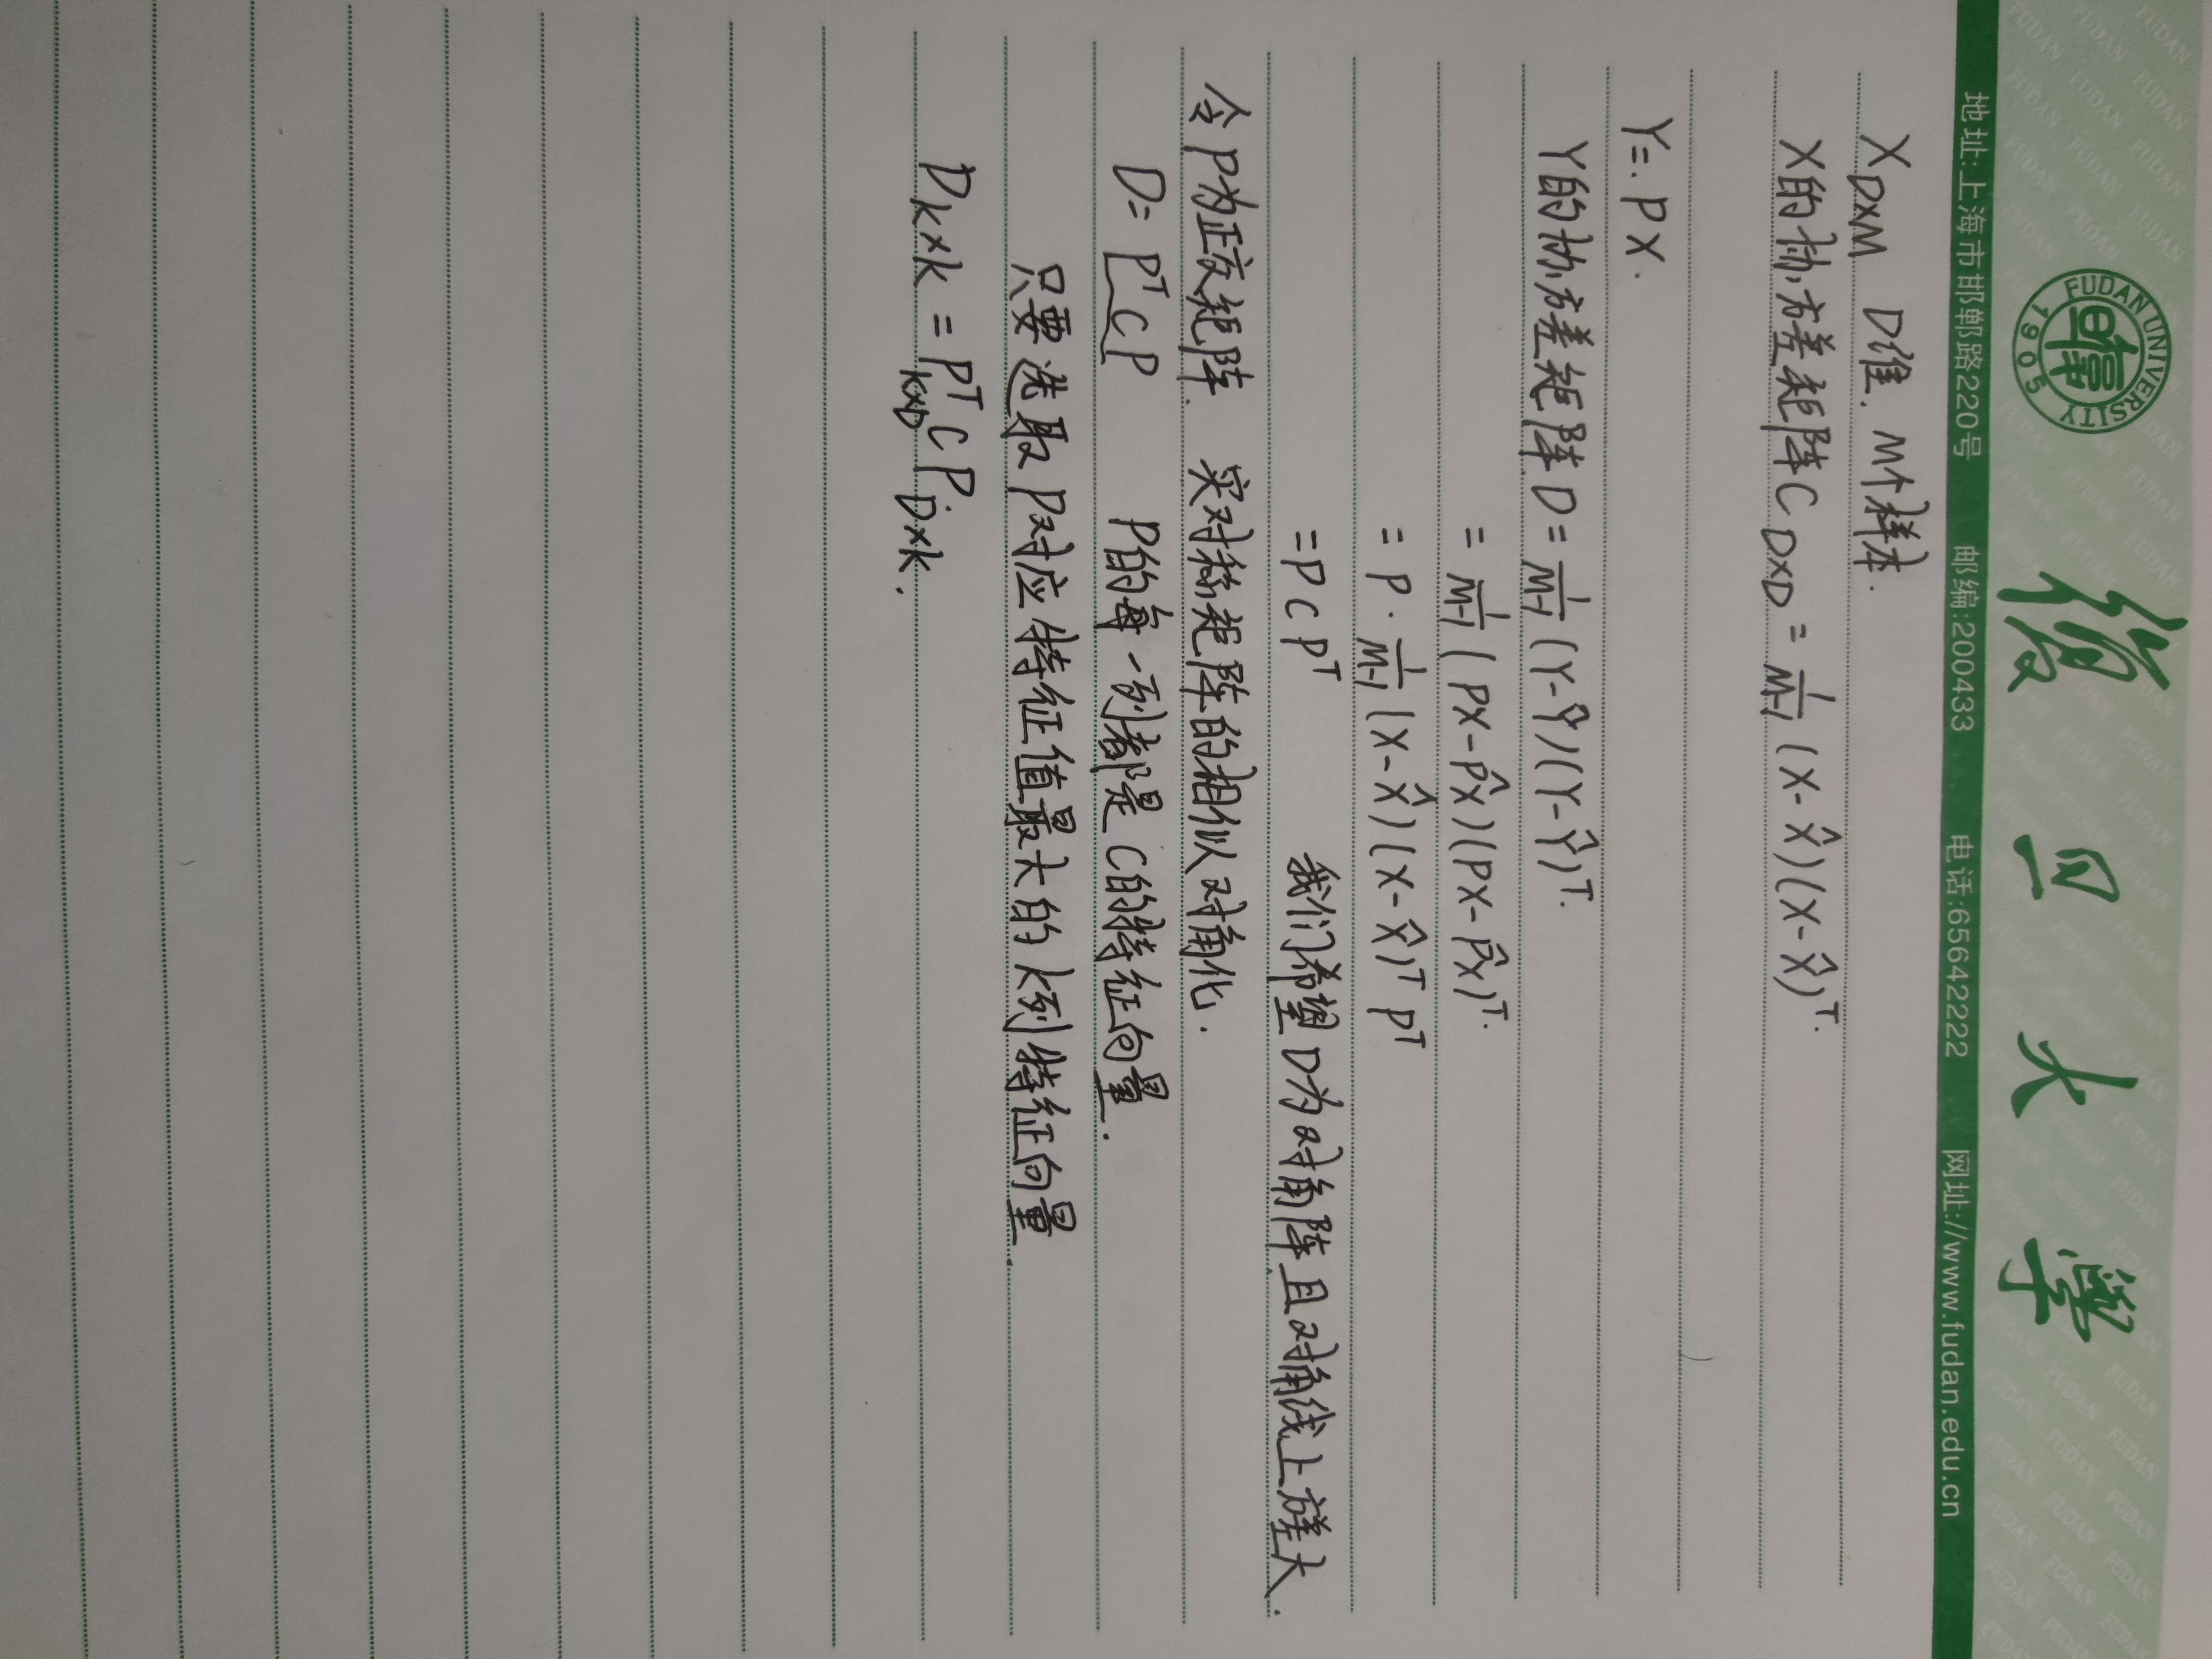 FUDAN UNIVERSITY 1905 復旦大學
地址:上海市邯郸路220号 邮编:200433 电话:65642222 网址://www.fudan.edu.cn
X_{D×M} D维. M个样本.
X的协方差矩阵 C_{D×D} = \frac{1}{M-1} (X-\hat{X})(X-\hat{X})^T.
Y=. PX.
Y的协方差矩阵 D = \frac{1}{M-1} (Y-\hat{Y})(Y-\hat{Y})^T.
= \frac{1}{M-1} (PX-\hat{PX})(PX-\hat{PX})^T.
= P · \frac{1}{M-1} (X-\hat{X})(X-\hat{X})^T P^T
= P C P^T 我们希望D为对角阵且对角线上方差大.
令P为正交矩阵. 实对称矩阵的相似对角化.
D= P^T C P P的每一列都是C的特征向量.
只要选取P对应特征值最大的k列特征向量.
D_{k×k} = P^T_{k×D} C P_{D×k}.